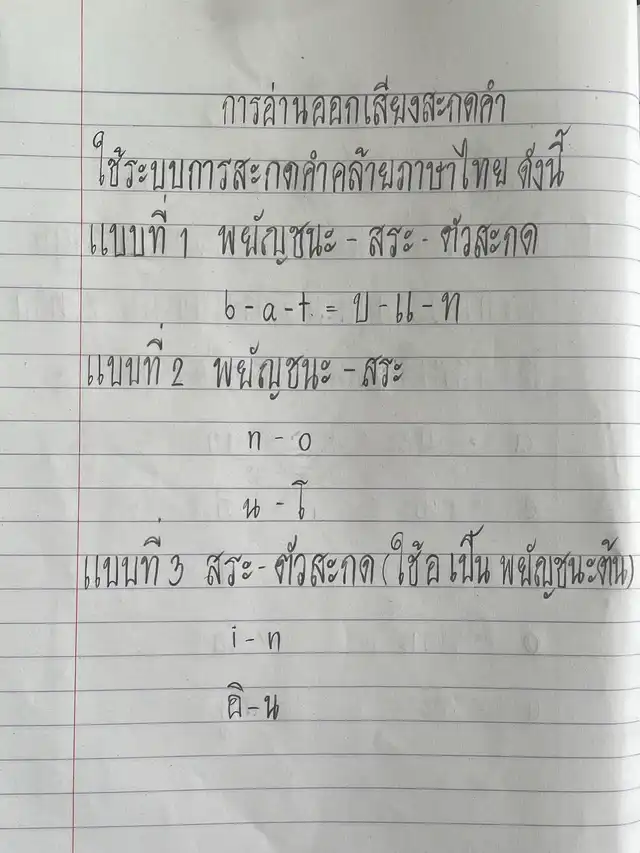 การอ่านออกเสียงสะกดคำ
ใช้ระบบการสะกดคำคล้ายภาษาไทย ดังนี้
แบบที่ 1 พยัญชนะ - สระ - ตัวสะกด
b - a - t = บ - แ - ท
แบบที่ 2 พยัญชนะ - สระ
n - o
น - โ
แบบที่ 3 สระ - ตัวสะกด (ใช้ อ เป็น พยัญชนะต้น)
i - n
อิ - น